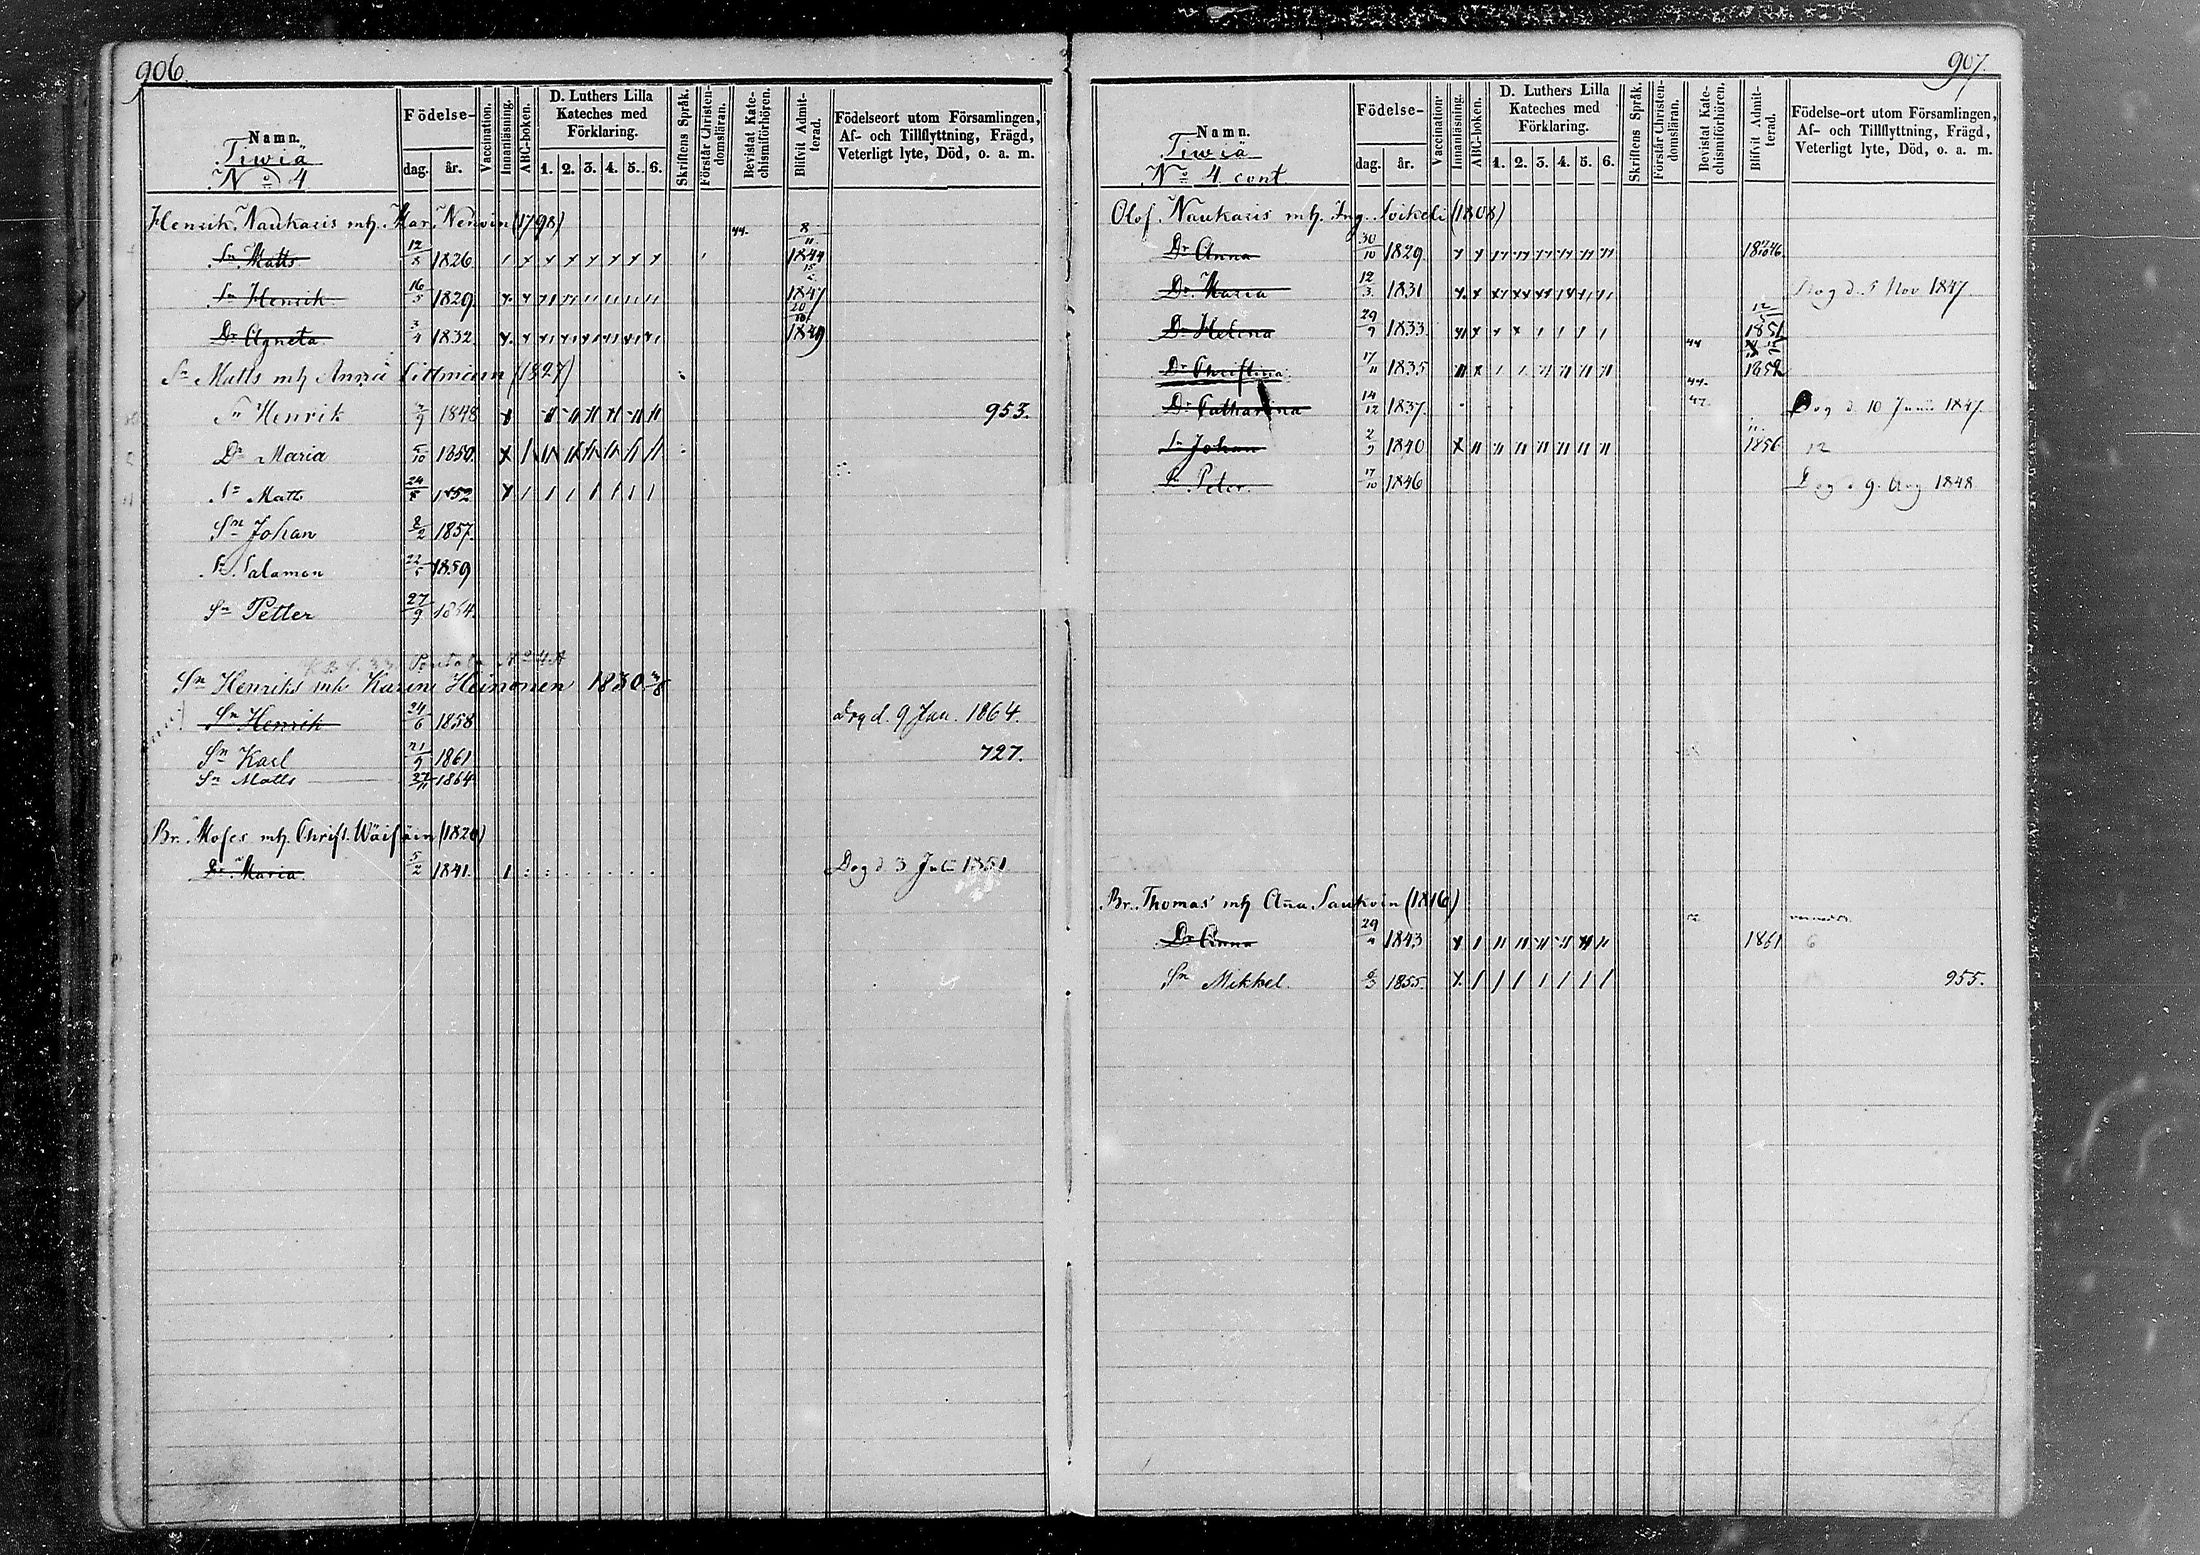 906.
Namn.
Tiwiä
N:o 4
Födelse-
dag. år.
Vaccination.
Innanläsning.
ABC-boken.
D. Luthers Lilla
Kateches med
Förklaring.
1. 2. 3. 4. 5. 6.
Skriftens Språk.
Förstår Christen-
domsläran.
Bevistat Kate-
chismiförhören.
Blifvit Admit-
terad.
Födelseort utom Församlingen,
Af- och Tillflyttning, Frägd,
Veterligt lyte, Död, o. a. m.
Henrik Naukaris mh. Mar. Nenvin (1798)
Sn Matts 12/8 1826 44. 8/11 1844
Sn Henrik 16/5 1829 1847
Dr Agneta 3/4 1832 20/10 1849
Sn Matts mh Anna (1827)
Sn Henrik 1848 953.
Dr Maria 1850
Sn Matts 24/8 1852
Sn Johan 8/2 1857
Sn Salamon 22/5 1859
Sn Petter 27/9 1864.
Sn Henriks mh Karin Heinonen 1830
Sn Henrik 24/6 1858 Dog d. 9 Jan. 1864.
Sn Karl 21/9 1861 727.
Sn Matts 27/11 1864
Br. Moses mh. Christ. Wäisäin (1820)
Dr Maria 5/2 1841 Dog d 3 Juli 1851
907.
Namn.
Tiwiä
N:o 4 cont.
Födelse-
dag. år.
Vaccination.
Innanläsning.
ABC-boken.
D. Luthers Lilla
Kateches med
Förklaring.
1. 2. 3. 4. 5. 6.
Skriftens Språk.
Förstår Christen-
domsläran.
Bevistat Kate-
chismiförhören.
Blifvit Admit-
terad.
Födelse-ort utom Församlingen,
Af- och Tillflyttning, Frägd,
Veterligt lyte, Död, o. a. m.
Olof Naukaris mh. Ing. Soikeli (1808)
Dr Anna 30/10 1829 1846
Dr Maria 12/3 1831 Dog d. 5 Nov 1847
Dr Helena 29/9 1833 44 1851
Dr Christina 17/11 1835 44. 1852
Dr Catharina 14/12 1837 47 Dog d 10 Juni 1847.
Sn Johan 2/9 1840 1856 12
Sn Peter 17/10 1846 Dog d 9. Aug 1848
Br. Thomas mh Anna Saukoin (1816)
Dr Anna 29/4 1843 1861 6
Sn Mikkel 6/3 1855. 955.